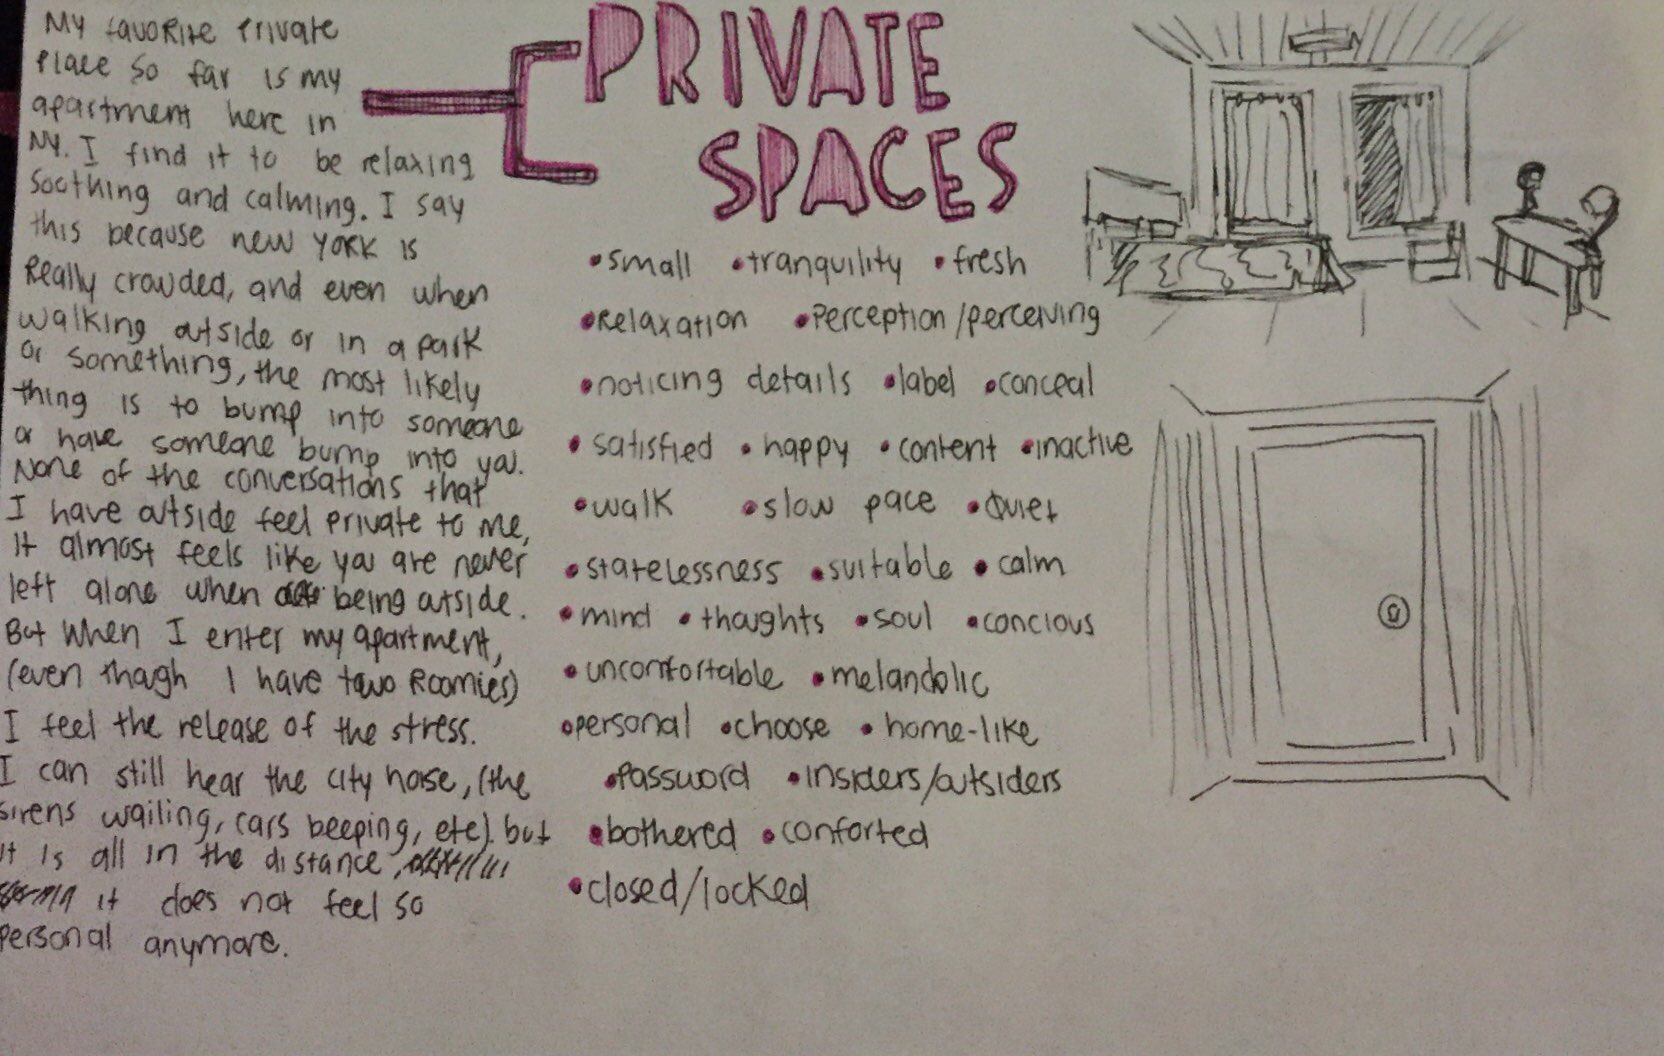 My favorite Private
Place so far is my
apartment here in
NY. I find it to be relaxing
soothing and calming. I say
this because new YORK is
Really crowded, and even when
walking outside or in a park
or something, the most likely
thing is to bump into someone
or have someone bump into you.
None of the conversations that
I have outside feel private to me,
It almost feels like you are never
left alone when being outside.
But when I enter my apartment,
(even though I have two Roomies)
I feel the release of the stress.
I can still hear the city noise, (the
sirens wailing, cars beeping, etc). but
it is all in the distance,
it does not feel so
personal anymore.
PRIVATE
SPACES
•small •tranquility •fresh
•Relaxation •Perception/perceiving
•noticing details •label •conceal
•satisfied •happy •content •inactive
•walk •slow pace •Quiet
•statelessness •suitable •calm
•mind •thoughts •soul •concious
•uncomfortable •melancolic
•personal •choose •home-like
•Password •insiders/outsiders
•bothered •conforted
•closed/locked